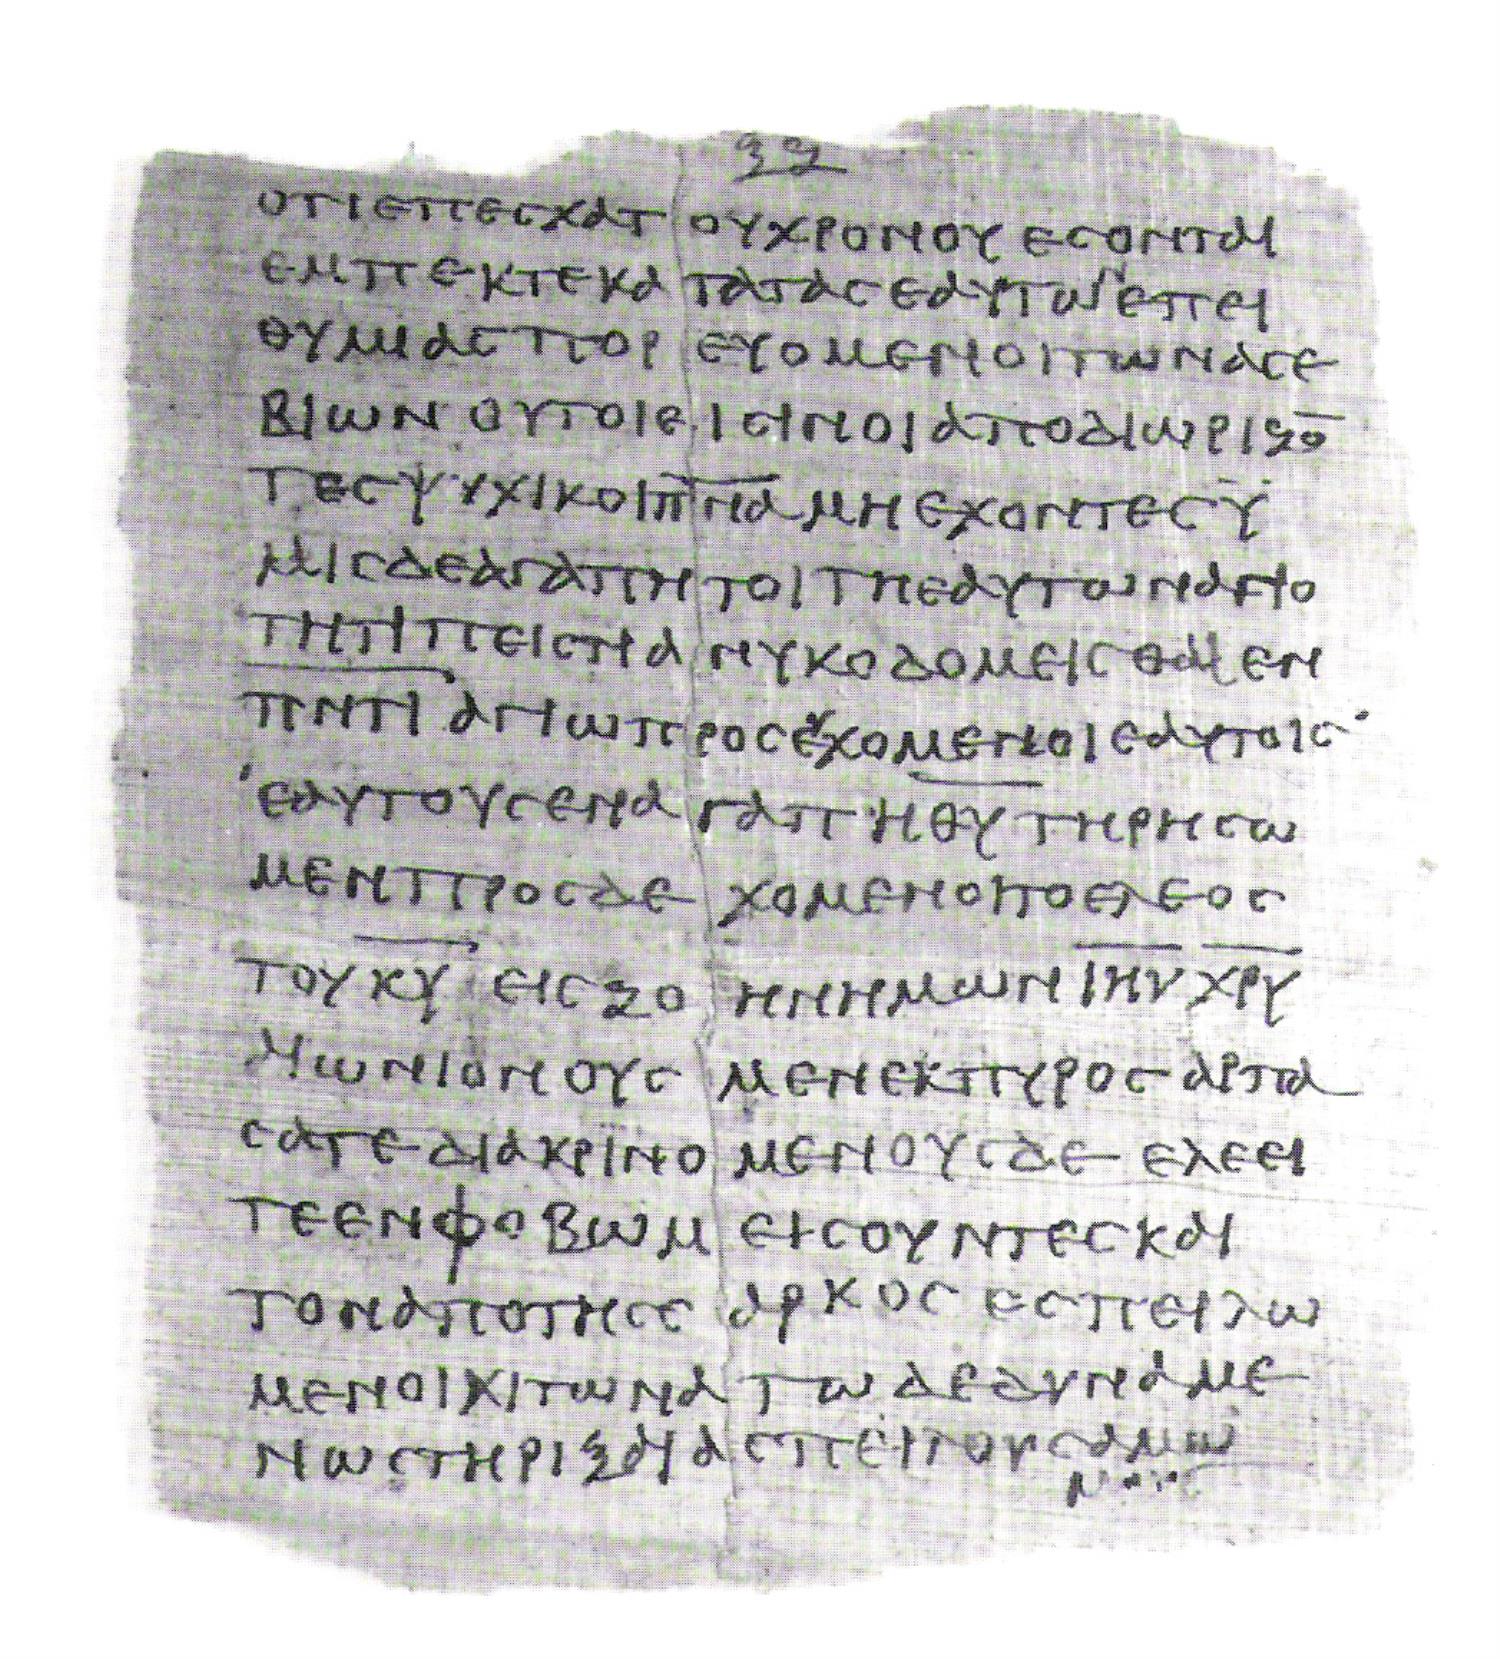 ϙϛ
ΟΤΙΕΠΕΣΧΑΤΟΥΧΡΟΝΟΥΕΣΟΝΤΑΙ
ΕΜΠΕΚΤΕΚΑΤΑΤΑΣΕΑΥΤΩΝΕΠΕΙ
ΘΥΜΙΑΣΠΟΡΕΥΟΜΕΝΟΙΤΩΝΑΣΕ
ΒΙΩΝΟΥΤΟΙΕΙΣΙΝΟΙΑΠΟΔΙΩΡΙΖΟ̅
ΤΕΣΨΥΧΙΚΟΙΠ̅Ν̅Α̅ΜΗΕΧΟΝΤΕΣΫ
ΜΙΣΔΕΑΓΑΠΗΤΟΙΤΗΕΑΥΤΩΝΑΓΙΟ
ΤΗΤΙΠΕΙΣΤΙΑΝΥΚΟΔΟΜΕΙΣΘΑΙΕΝ
Π̅Ν̅Τ̅Ι̅ΑΓΙΩΠΡΟΣΕΥΧΟΜΕΝΟΙΕΑΥΤΟΙΣ
ΕΑΥΤΟΥΣΕΝΑΓΑΠΗΘ̅Υ̅ΤΗΡΗΣΩ
ΜΕΝΠΡΟΣΔΕΧΟΜΕΝΟΙΤΟΕΛΕΟΣ
ΤΟΥΚ̅Υ̅ΕΙΣΖΟΗΝΗΜΩΝΙ̅Η̅Υ̅Χ̅Ρ̅Υ̅
ΑΙΩΝΙΟΝΟΥΣΜΕΝΕΚΠΥΡΟΣΑΡΠΑ
ΣΑΤΕΔΙΑΚΡΙΝΟΜΕΝΟΥΣΔΕΕΛΕΕΙ
ΤΕΕΝΦΟΒΩΜΕΙΣΟΥΝΤΕΣΚΑΙ
ΤΟΝΑΠΟΤΗΣΣΑΡΚΟΣΕΣΠΕΙΛΩ
ΜΕΝΟΙΧΙΤΩΝΑΤΩΔΕΔΥΝΑΜΕ
ΝΩΣΤΗΡΙΖΑΙΑΣΠΕΙΛΟΥΣΑΜΩ